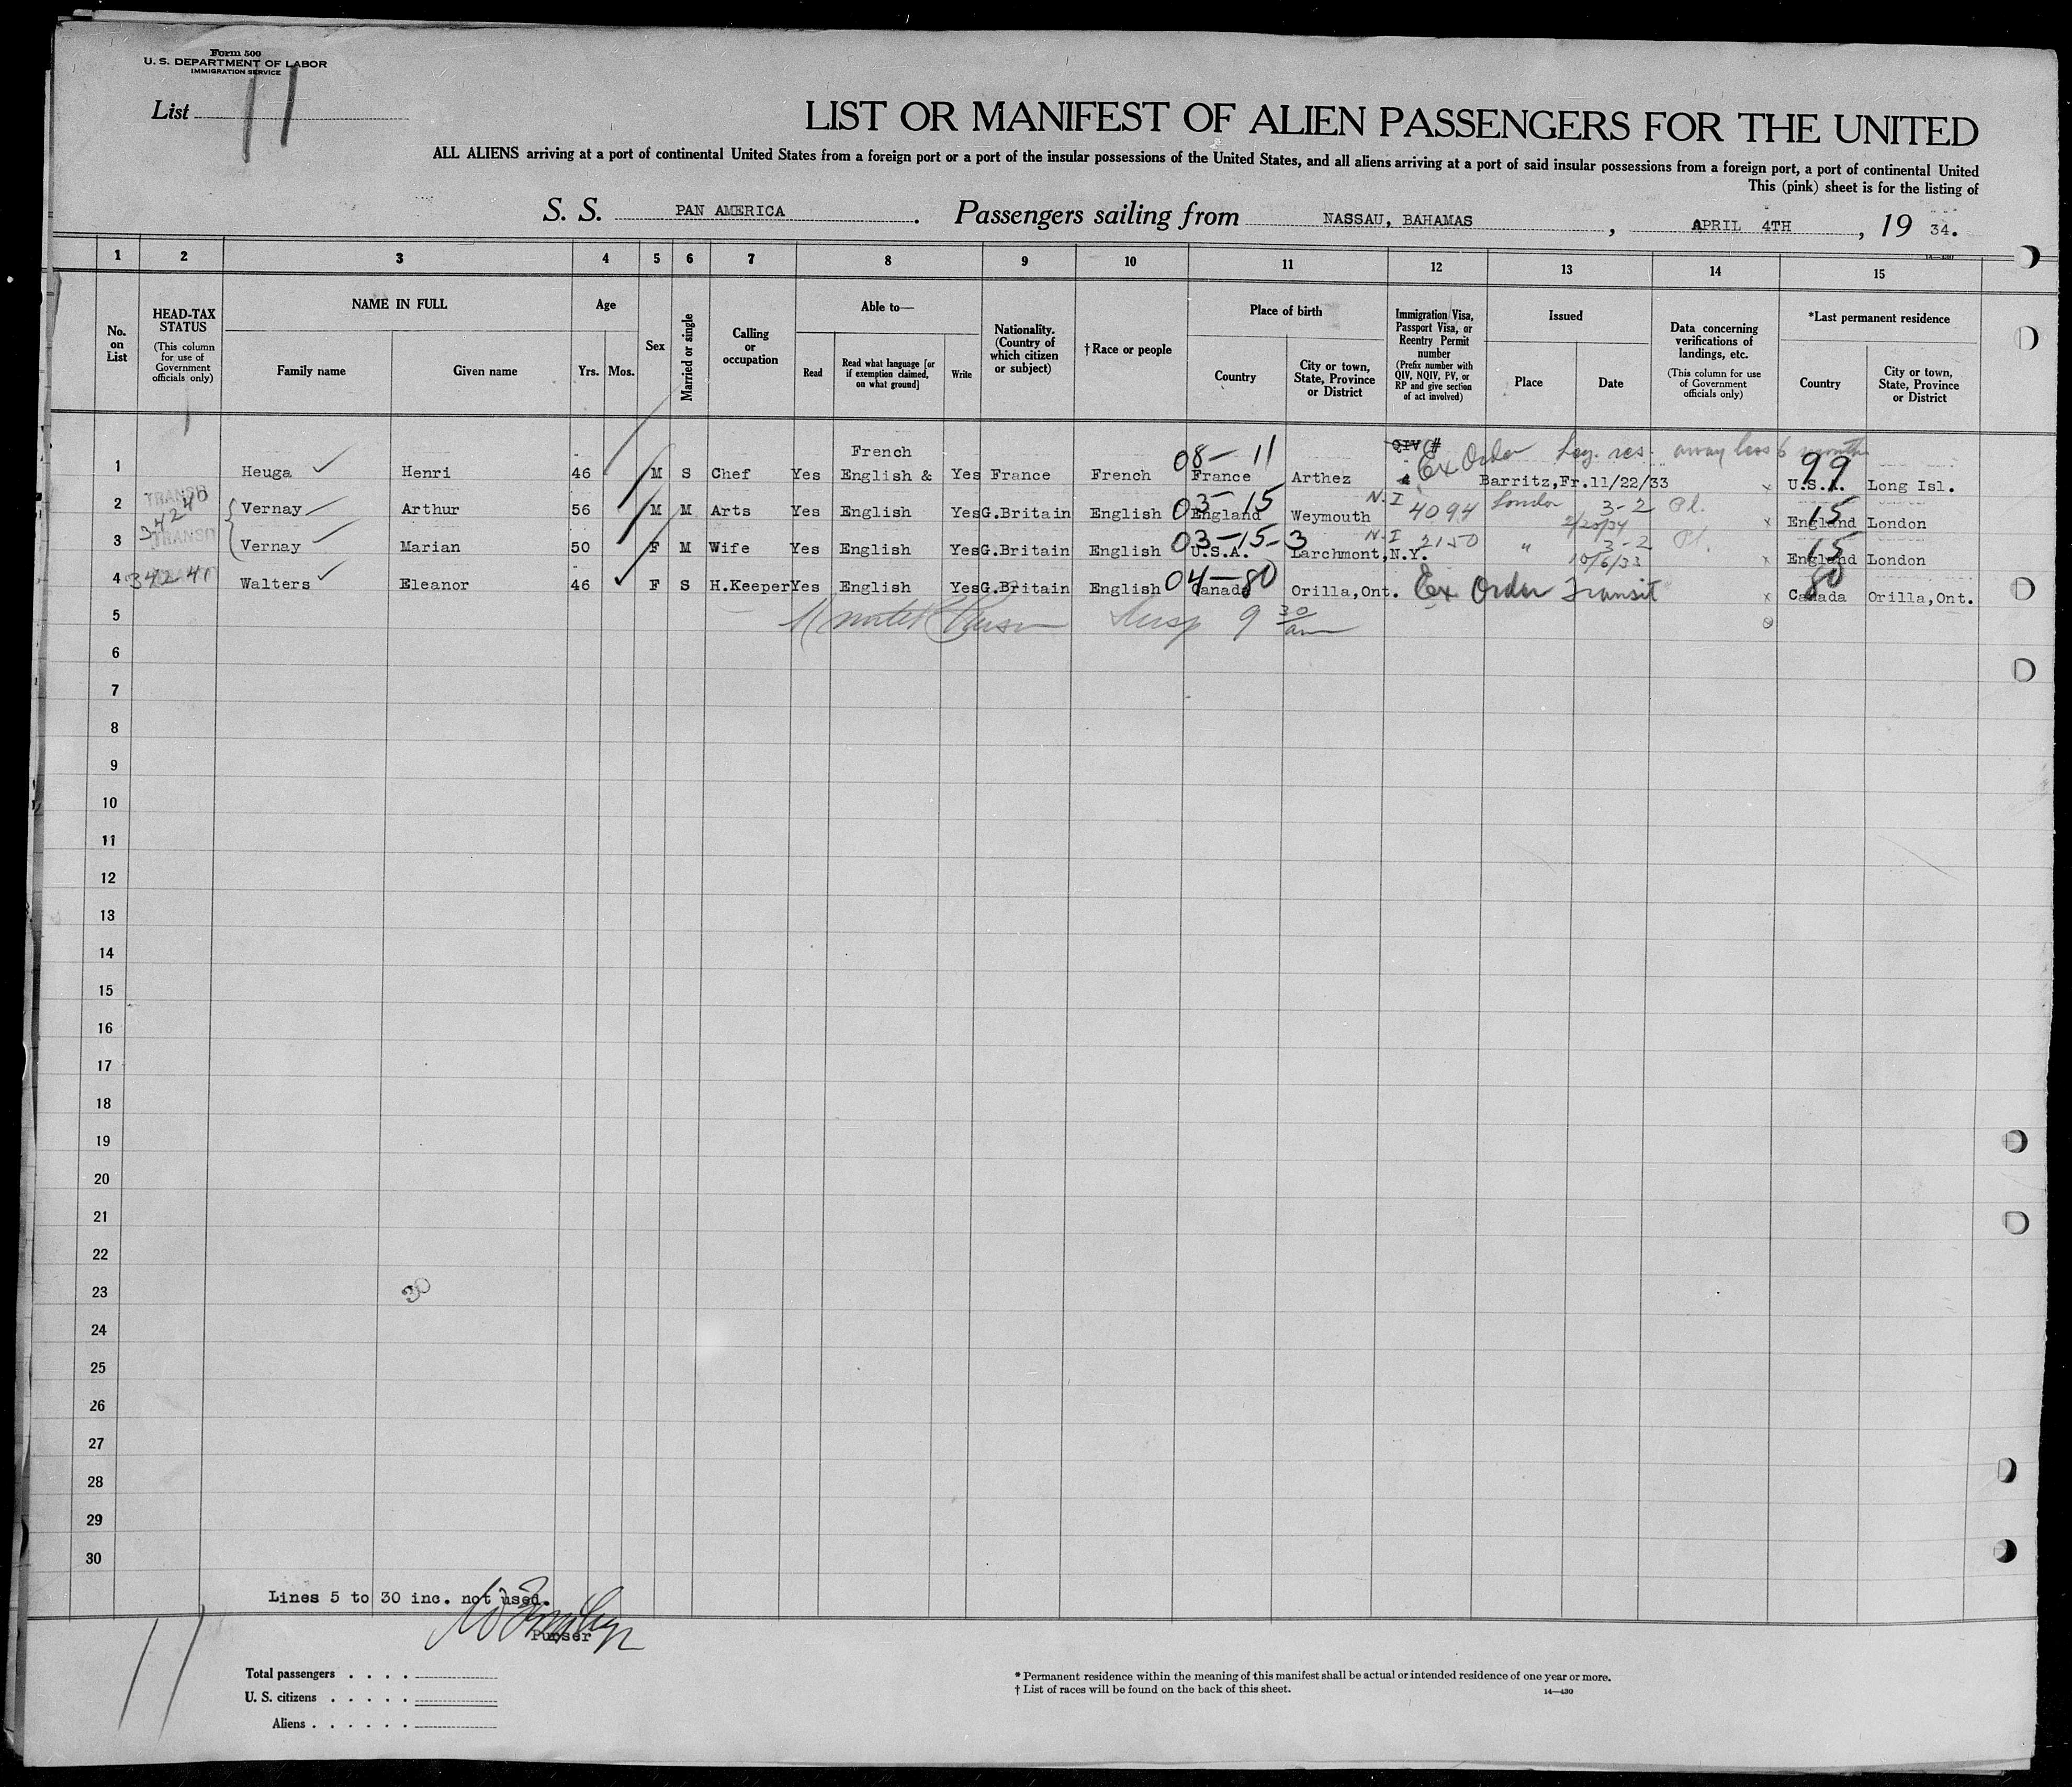 Form 500
U. S. DEPARTMENT OF LABOR
IMMIGRATION SERVICE
List 11
LIST OR MANIFEST OF ALIEN PASSENGERS FOR THE UNITED
ALL ALIENS arriving at a port of continental United States from a foreign port or a port of the insular possessions of the United States, and all aliens arriving at a port of said insular possessions from a foreign port, a port of continental United
This (pink) sheet is for the listing of
S. S. PAN AMERICA. Passengers sailing from NASSAU, BAHAMAS, APRIL 4TH, 19 34.
14—430
1 2 3 4 5 6 7 8 9 10 11 12 13 14 15
No. on List
HEAD-TAX STATUS (This column for use of Government officials only)
NAME IN FULL
Family name Given name
Age
Yrs. Mos.
Sex
Married or single
Calling or occupation
Able to—
Read
Read what language [or if exemption claimed, on what ground]
Write
Nationality. (Country of which citizen or subject)
†Race or people
Place of birth
Country
City or town, State, Province or District
Immigration Visa, Passport Visa, or Reentry Permit number (Prefix number with QIV, NQIV, PV, or RP and give section of act involved)
Issued
Place Date
Data concerning verifications of landings, etc. (This column for use of Government officials only)
*Last permanent residence
Country
City or town, State, Province or District
French 08- 11 QIV # Ex Order Leg. res. away less 6 months 99
1 Heuga Henri 46 M S Chef Yes English & Yes France French France Arthez Barritz,Fr.11/22/33 x U.S.A. Long Isl.
TRANSIT 34240 03-15 N.I 4094 London 3-2 Pl. 15
2 Vernay Arthur 56 M M Arts Yes English Yes G.Britain English England Weymouth 2/20/34 x England London
TRANSIT 03-15-3 N.I 2150 " 3-2 Pl. 15
3 Vernay Marian 50 F M Wife Yes English Yes G.Britain English U.S.A. Larchmont,N.Y. 10/6/33 x England London
34241 04-80 Ex Order Transit 80
4 Walters Eleanor 46 F S H.Keeper Yes English Yes G.Britain English Canada Orilla,Ont. x Canada Orilla,Ont.
5 9 30 am
6
7
8
9
10
11
12
13
14
15
16
17
18
19
20
21
22
23 30
24
25
26
27
28
29
30
Lines 5 to 30 inc. not used.
Purser
11
Total passengers . . . .
U. S. citizens . . . . .
Aliens . . . . . .
* Permanent residence within the meaning of this manifest shall be actual or intended residence of one year or more.
† List of races will be found on the back of this sheet.
14—430